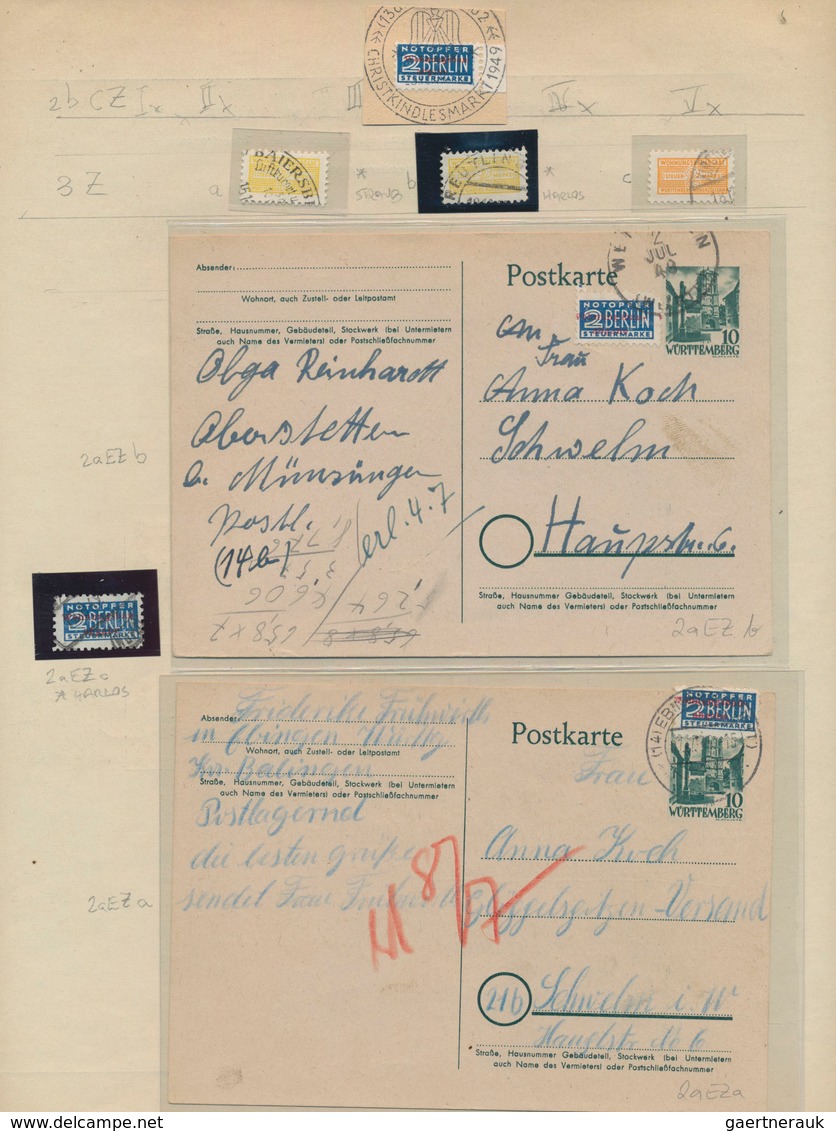 CHRISTKINDLESMARKT 1949
NOTOPFER
2 BERLIN
STEUERMARKE
2b CZ Ix IIx III IVx Vx
3Z a * b * c
STRAUB HARLOS
BAIERSB
REUTLIN
WOHNUNGSBAU
Absender:
Wohnort, auch Zustell- oder Leitpostamt
Straße, Hausnummer, Gebäudeteil, Stockwerk (bei Untermietern
auch Name des Vermieters) oder Postschließfachnummer
Postkarte
JUL
NOTOPFER
2 BERLIN
STEUERMARKE
10
WÜRTTEMBERG
Olga Reinhardt
Oberstetten
b. Münsingen
postl.
(14b)
erl. 4.7
An
Frau
Anna Koch
Schwelm
Hauptstr. 6.
Straße, Hausnummer, Gebäudeteil, Stockwerk (bei Untermietern
auch Name des Vermieters) oder Postschließfachnummer
2aEZ b
2aEZ b
NOTOPFER
2 BERLIN
STEUERMARKE
2aEZ c
* HARLOS
Absender: Friederike
in Ebingen
Wohnort, auch Zustell- oder Leitpostamt
Kr. Balingen
Straße, Hausnummer, Gebäudeteil, Stockwerk (bei Untermietern
auch Name des Vermieters) oder Postschließfachnummer
Postlagernd
die besten Grüße
sendet Frau
Postkarte
NOTOPFER
2 BERLIN
STEUERMARKE
10
WÜRTTEMBERG
Frau
Anna Koch
Versand
21b Schwelm i. W
Hauptstr. No 6
Straße, Hausnummer, Gebäudeteil, Stockwerk (bei Untermietern
auch Name des Vermieters) oder Postschließfachnummer
2aEZ a
2aEZa
gaertnerauk